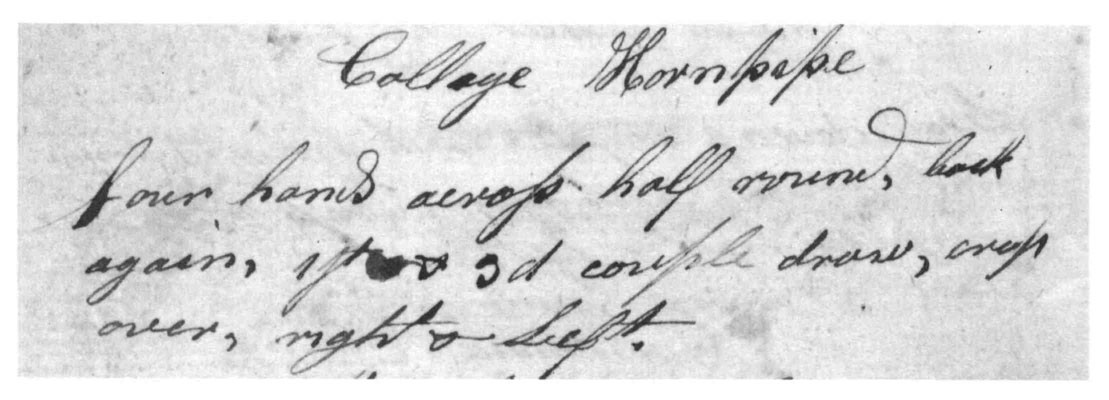 College Hornpipe
four hands across half round, back
again, 1st & 3d couple draw, cross
over, right & left.